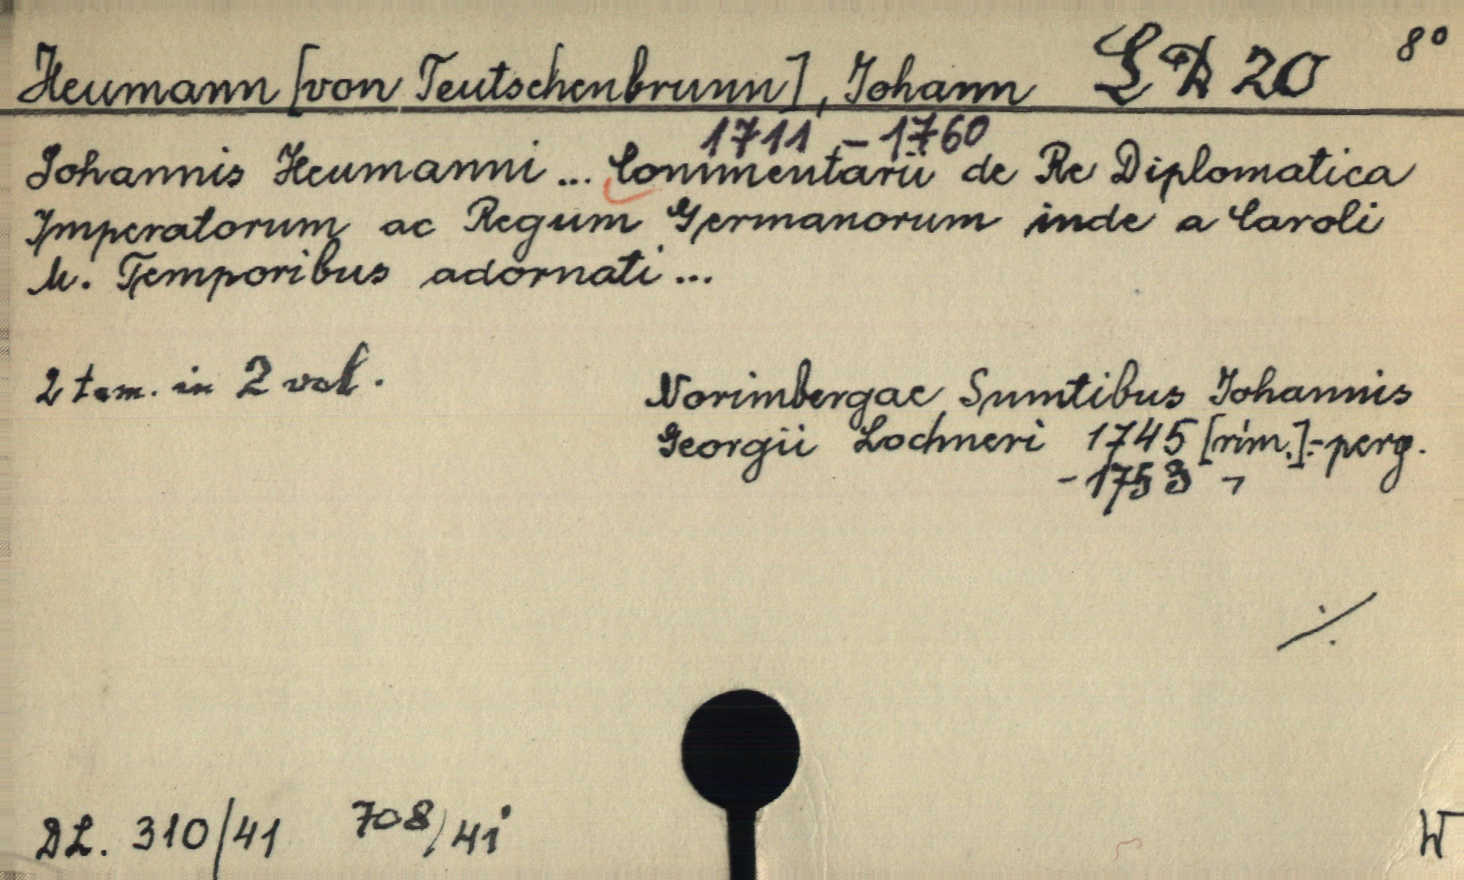 Heumann [von Teutschenbrunn], Johann LD 20 8°
1711 - 1760
Johannis Heumanni ... Commentarii de Re Diplomatica
Imperatorum ac Regum Germanorum inde a Caroli
M. Temporibus adornati ...
2 tom. in 2 vol.
Norimbergae, Sumtibus Johannis
Georgii Lochneri 1745 [rim.]:- perg.
- 1753
DL. 310/41 708/41
W